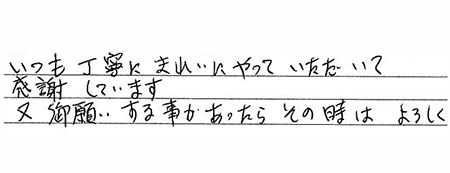 いつも丁寧にきれいにやっていただいて
感謝しています
又御願いする事があったらその時はよろしく